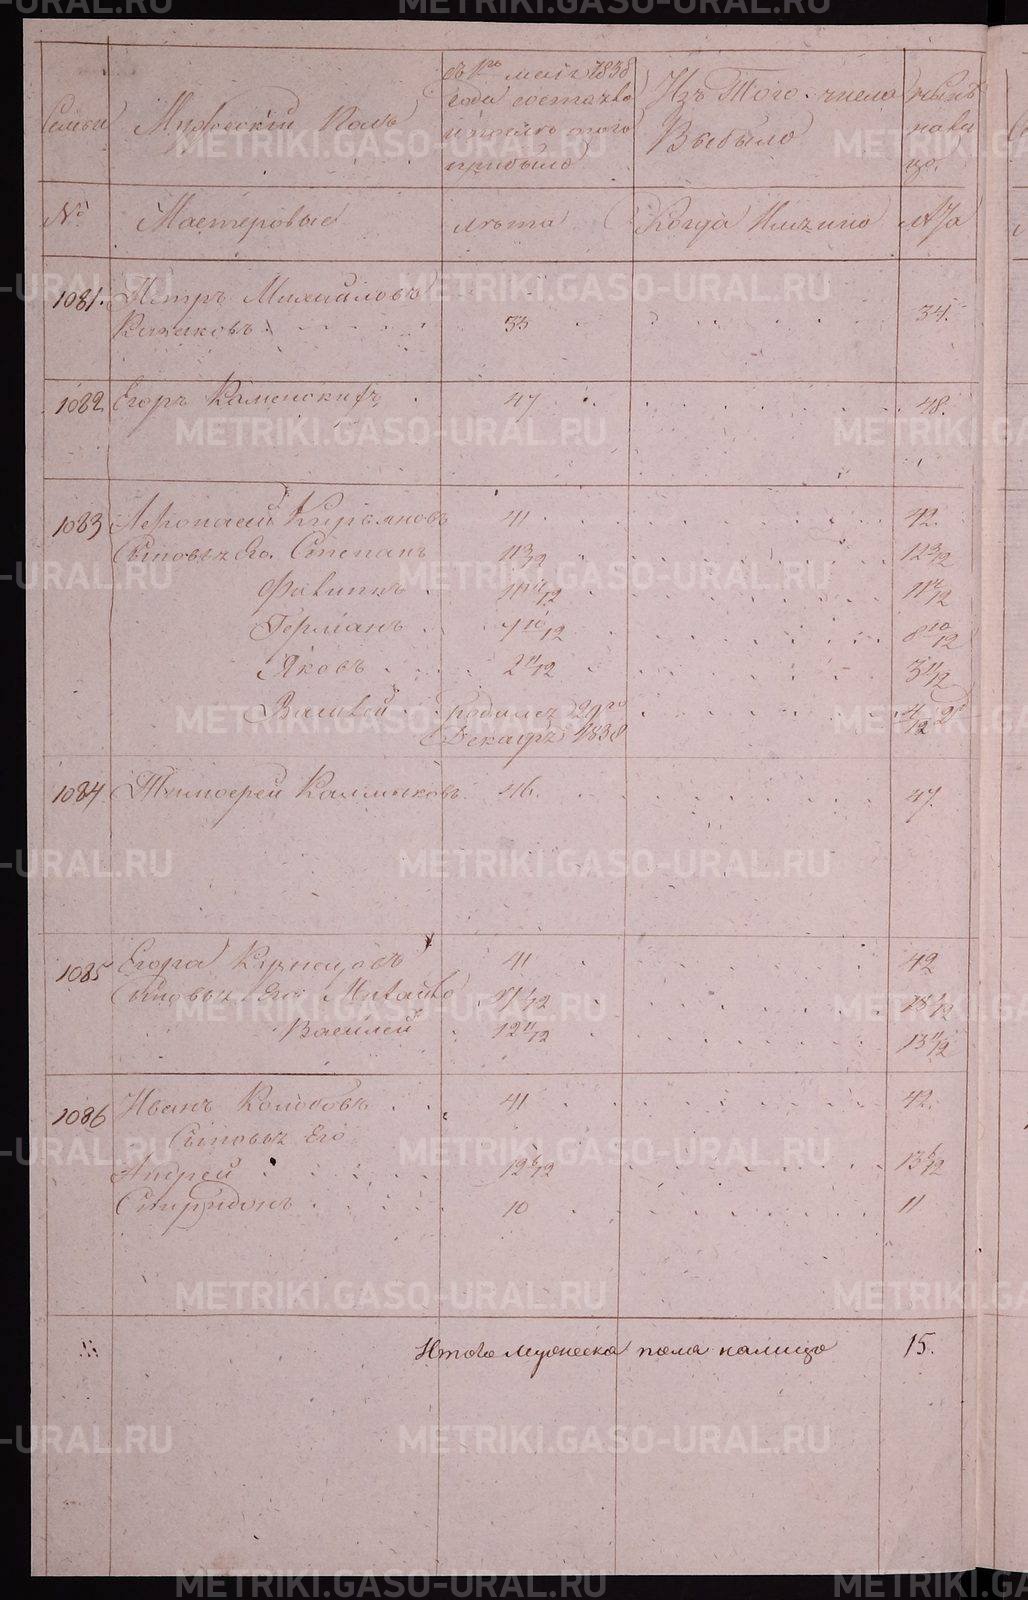 Семьи
Мужеский Полъ
съ 1го маія 1838
года состояло
и после того
прибыло
Изъ Того числа
Выбыло
ныне
нали
цо.
№
Мастеровые
лѣта
Когда Имянно
лѣта
1081. Петръ Михайловъ
Казаковъ 33 34.
1082 Егоръ Каменских 47 48.
1083 Афонасей Кирьяновъ 41 42.
Сыновья Его Степанъ 11 3/12 12 3/12
Филипъ 11/12 11/12
Германъ 7 10/12 8 10/12
Яковъ 2 11/12 3 11/12
Василей родился 29го 4/12 2д
Декабр 1838
1084 Тимофей Калмыковъ 46. 47.
1085 Егора Кузнецовъ 41 42
Сыновья Его Михайло
Василей 12 11/12 13 11/12
1086 Иванъ Колобовъ 41 42.
Сыновья Его
Андрей 12 6/12 13 6/12
Спиридонъ 10 11
Итого мужеска пола налицо 15.
METRIKI.GASO-URAL.RU